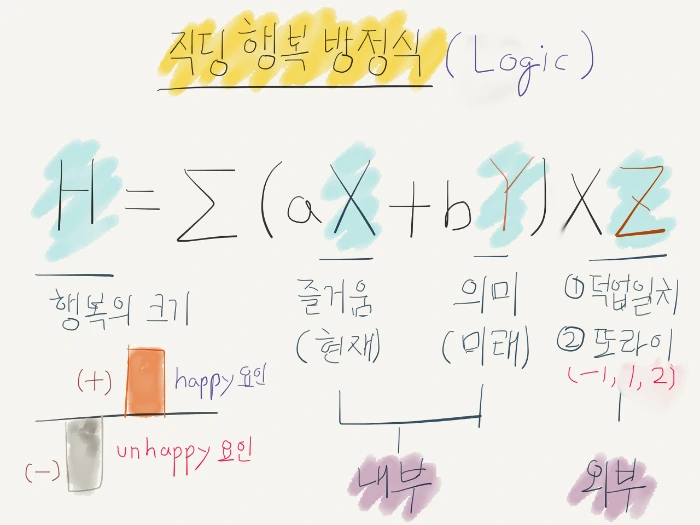 직딩 행복 방정식 (Logic)
H = Σ (aX + bY) X Z
행복의 크기
즐거움
(현재)
의미
(미래)
① 덕업일치
② 또라이
(-1, 1, 2)
(+) happy 요인
(-) unhappy 요인
내부
외부